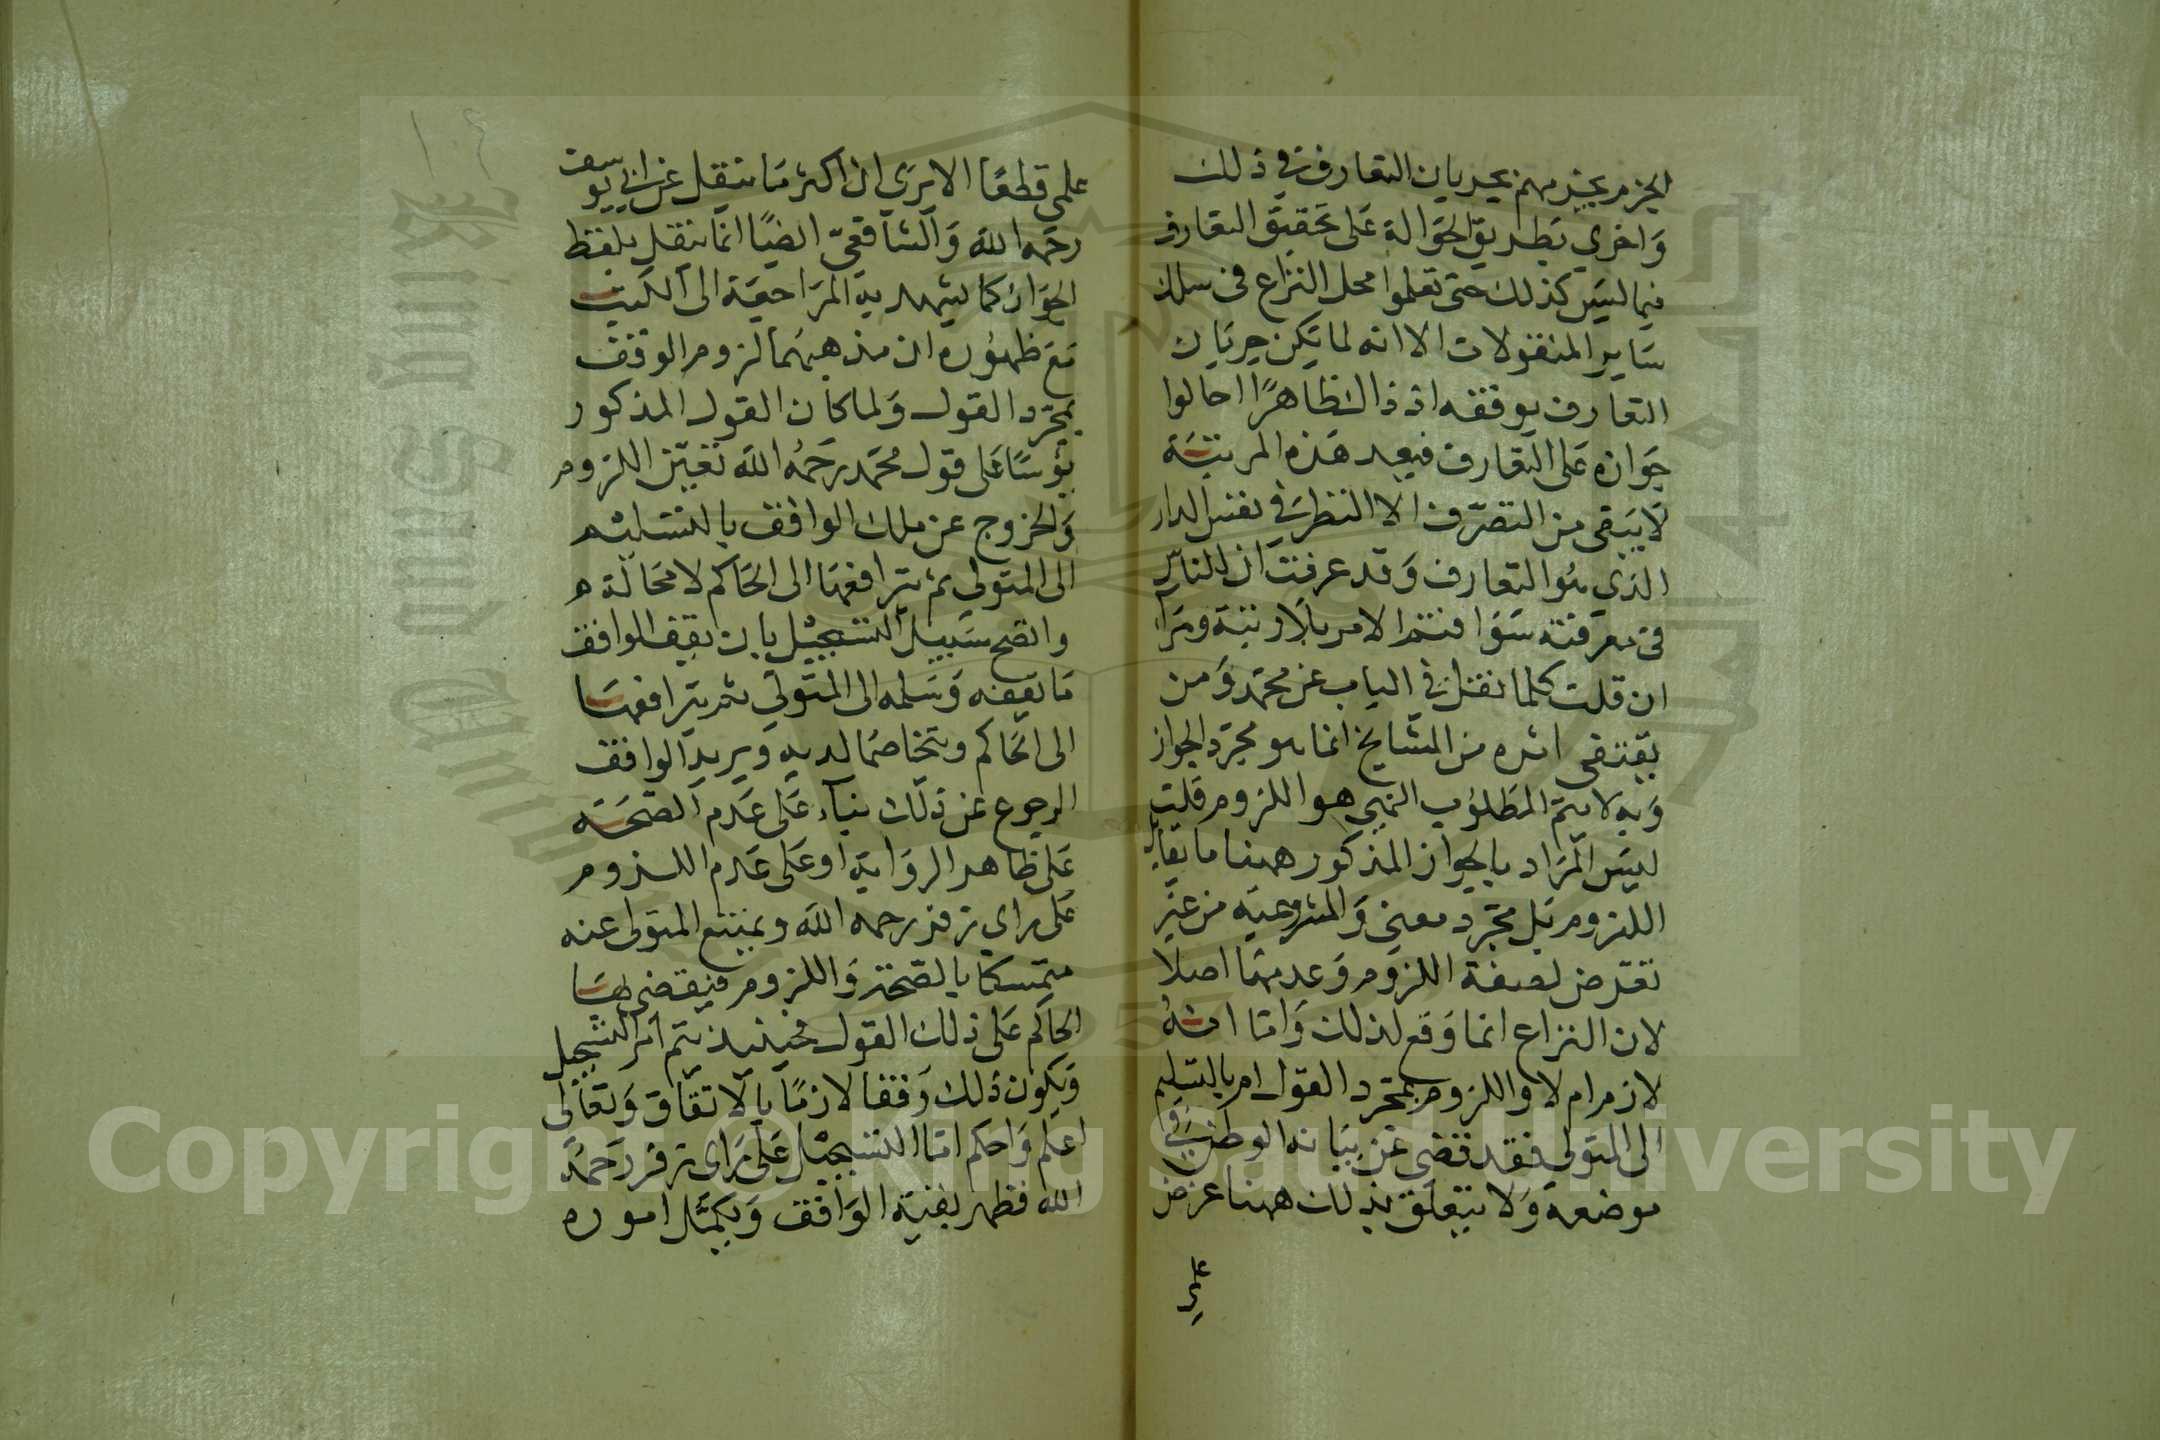 الجزم بجزمهم بجريان التعارف في ذلك
وَاخري بَطريق الحَوالة عَلى تحَقيق التعارف
فيما ليسَ كذلك حَتى تعلموا محل النزاع في سلك
سَاير المنقولات الا انه لما يَكن جريَان
التعارف بوقفه اذ ذاك ظاهرًا احالوا
جَوازه عَلى التعارف فبعد هَذه المرتبَة
لاَ يَبقى من التصرّف الا النظر في نفس المدار
الذي هُو التعارف وَقد عرفتَ ان للناس
في معرفته سَوَا فتم الامر بلا رتبة ومرَا
ان قلت كلما نقل في الباب عن محمد وَمن
يقتفي اثره من المشايخ انما هو مجرّد الجواز
وَبه لا يتم المطَلوُب الذي هو اللزوم قلت
ليسَ المرَاد بالجواز المذكور ههنا ما يقابل
اللزوم بَل مجَرد معنى وَالمشروعيّة من غيَر
تعرّض لصفة اللزوم وَعدمهَا اصلا
لان النزاع انما وَقع لذلك وَامّا انهُ
لازم ام لا واللزوم بمجَرد القول ام بالتسليم
الى المتولي فقد قضي عَن بيَانه الوطر في
موضعه وَلا يتعلق بذلك ههنا غرض
علمي
علمي قطعًا الا يرَي ان اكثر مَا ينقل عَن ابي يوسف
رحمَه الله وَالشافعيّ ايضًا انما ينقل بلفظ
الجوَاز كما يشهد به المرَاجعَة الى الكتب
مَع ظهوُره ان مذهبهمَا لزوم الوقف
بمجرّد القول وَلما كان القول المذكور
مؤسسًا عَلى قول محمَد رحَمهُ الله تعيّن اللزوم
وَالخروج عن ملك الواقف بالتسليم
الى المتولي ثم ترافعهمَا الى الحَاكم لا محَالة
واتضح سَبيل التسجيْل بان يقف الواقف
مَا يقفه وَسَلمه الى المتوَلي ثم يترافعهمَا
الى الحَاكم ويتخاصمَا لديه وَيريد الواقف
الرجوع عَن ذلك بناء عَلى عَدم الصّحَة
عَلى ظاهر الروَاية اوعَلى عَدم اللزوم
عَلى راي زفر رحمه الله ويمتنع المتولى عنه
متمسكا بالصّحة وَاللزوم فيقضي بهمَا
الحاكم عَلى ذلك القول فحينئذ يتم امر التسجيل
وَيكون ذلك وَقفا لازمًا بالاتفاق وَتعَالى
اعلم وَاحكم امّا التسجيْل عَلى رَاى زفر رَحمَهُ
الله فظهر بغنية الوَاقف وَيكمَل اموره
Copyright © King Saud University
King Saud University
1957